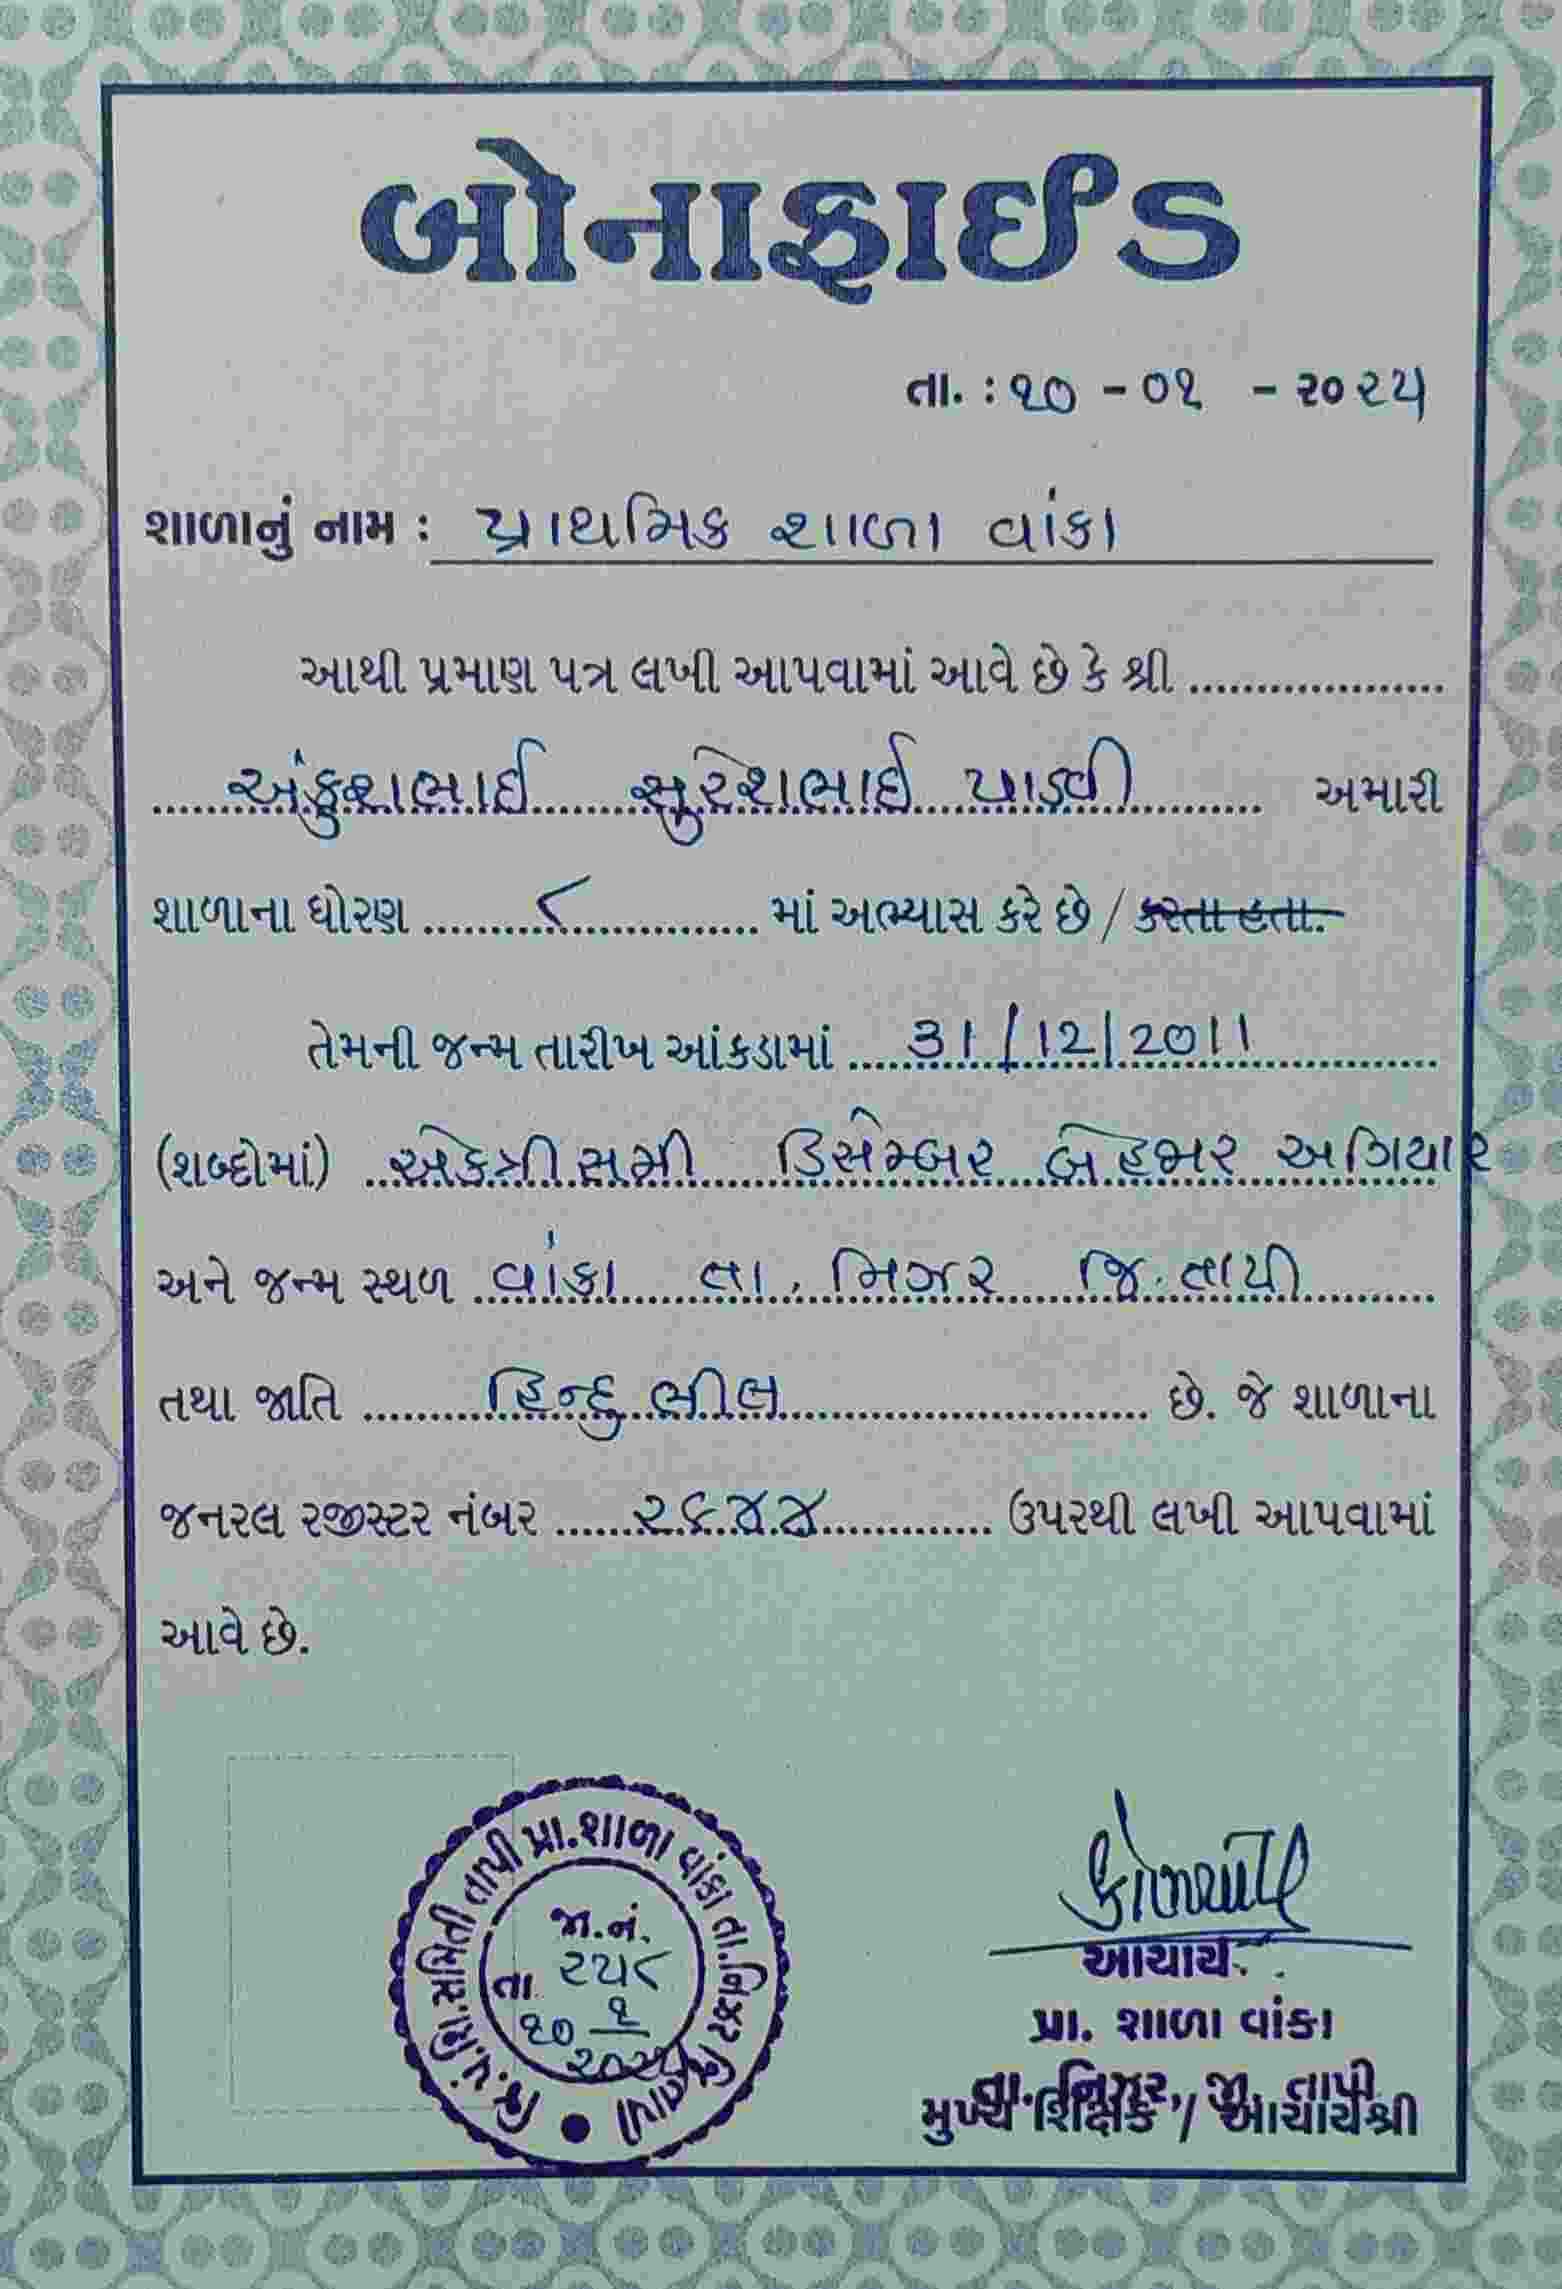 બોનાફાઈડ
તા. : ૧૦ - ૦૧ - ૨૦૨૫
શાળાનું નામ : પ્રાથમિક શાળા વાંકા
આથી પ્રમાણ પત્ર લખી આપવામાં આવે છે કે શ્રી ....................
અંકુશભાઈ સુરેશભાઈ પાડવી અમારી
શાળાના ધોરણ ૮ માં અભ્યાસ કરે છે / કરતા હતા.
તેમની જન્મ તારીખ આંકડામાં 31/12/2011
(શબ્દોમાં) એકત્રીસમી ડિસેમ્બર બેહજાર અગિયાર
અને જન્મ સ્થળ વાંકા તા. નિઝર જિ. તાપી
તથા જાતિ હિન્દુ ભીલ છે. જે શાળાના
જનરલ રજીસ્ટર નંબર ૨૬૪૪ ઉપરથી લખી આપવામાં
આવે છે.
જિ.પં.શિ.સમિતી તાપી પ્રા.શાળા વાંકા તા.નિઝર જિ.તાપી
જા.નં.
૨૫૮
તા ૧૦/૧/૨૦૨૫
આચાર્ય
પ્રા. શાળા વાંકા
તા. નિઝર, જી. તાપી
મુખ્ય શિક્ષક / આચાર્યશ્રી